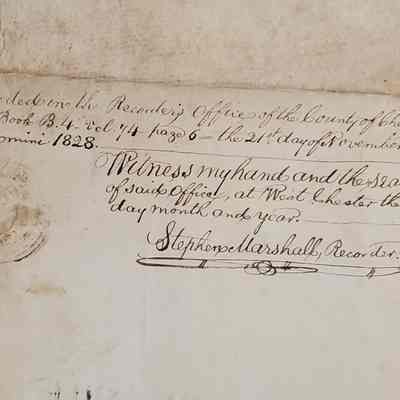 ded in the Recorder's Office of the County of Che
Book B. 4. vol 74 page 6 — the 21st day of November
omini 1828.
Witness my hand and the sea
of said Office, at West Chester the
day month and year.
Stephen Marshall, Recorder.